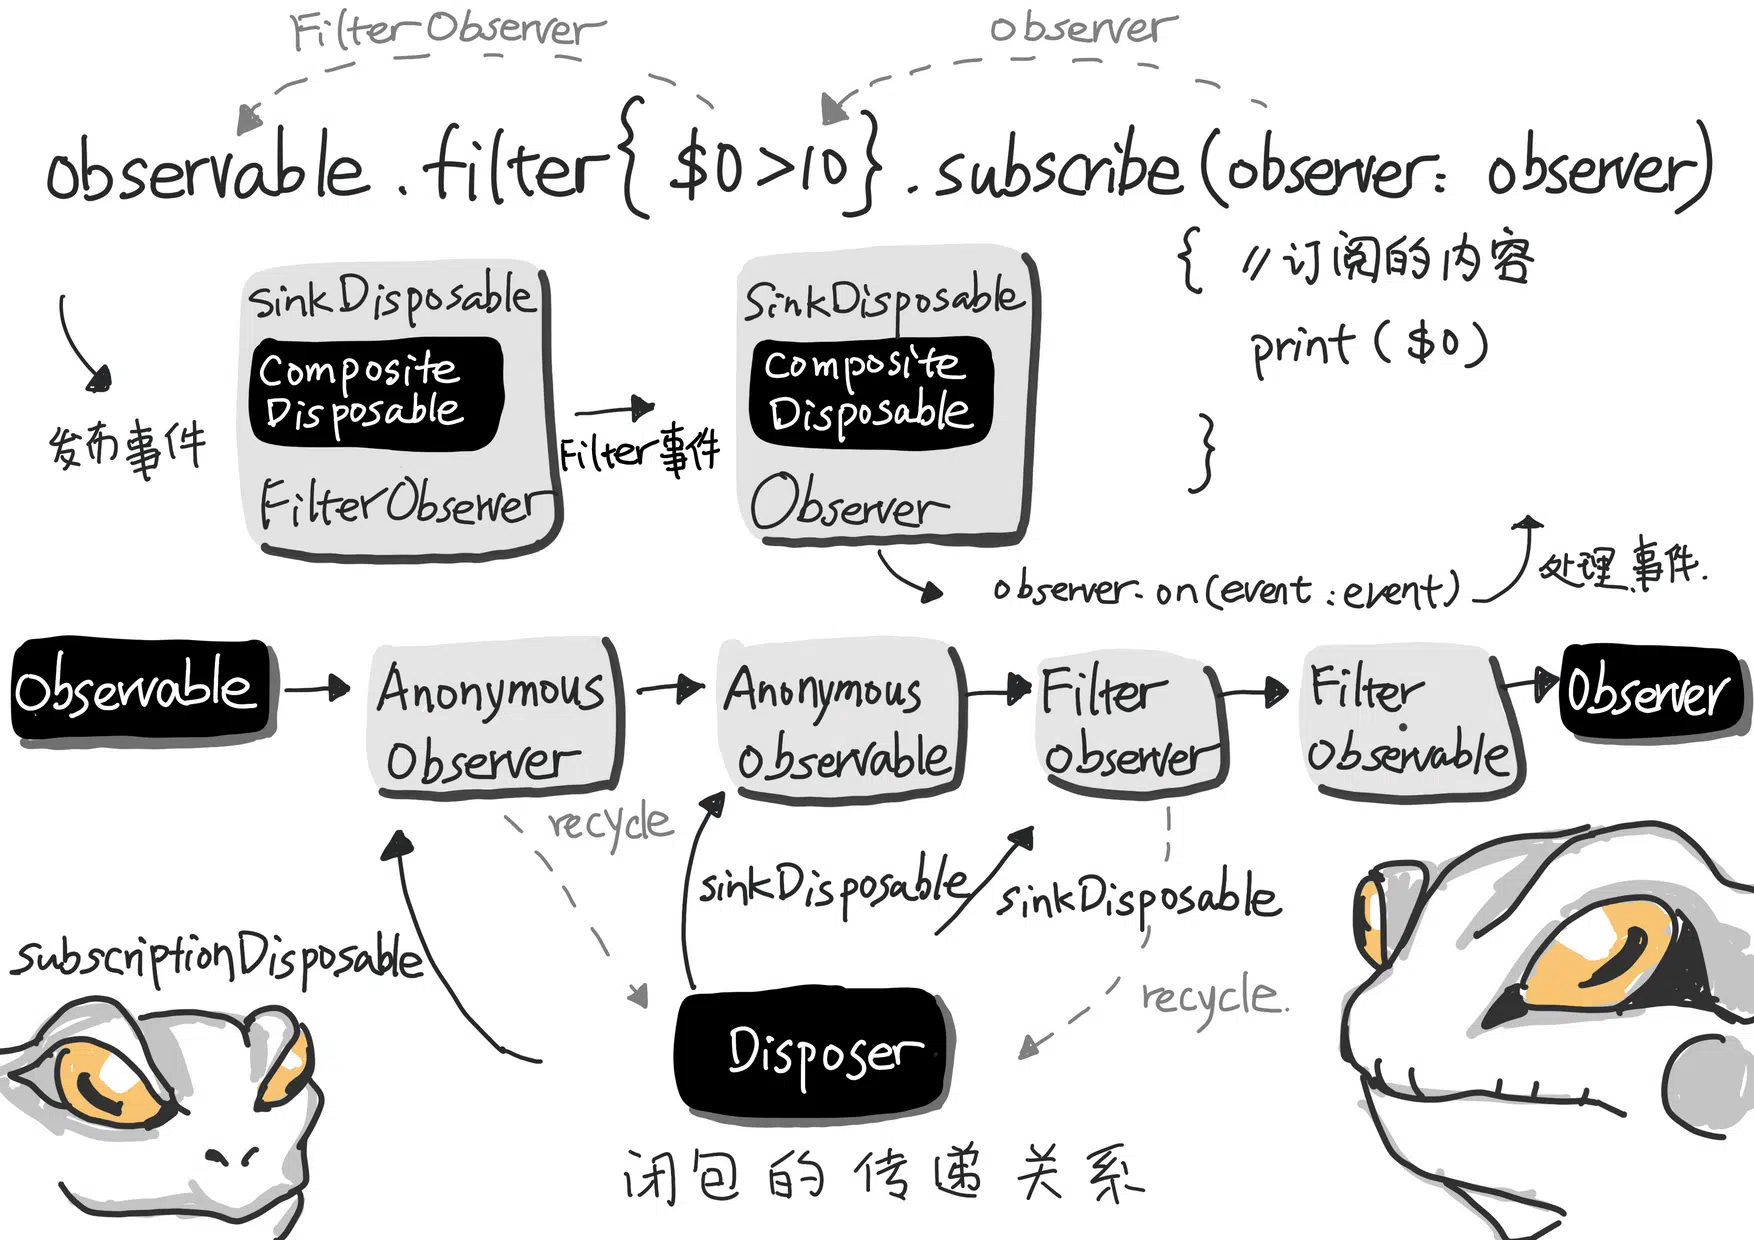 FilterObserver
observer
observable.filter{$0>10}.subscribe(observer: observer)
{ //订阅的内容
print($0)
}
sinkDisposable
Composite
Disposable
FilterObserver
发布事件
Filter事件
SinkDisposable
Composite
Disposable
Observer
observer.on(event:event)
处理事件.
Observable
Anonymous
Observer
Anonymous
Observable
Filter
Observer
Filter
Observable
Observer
recycle
sinkDisposable
sinkDisposable
subscriptionDisposable
recycle.
Disposer
闭包的传递关系